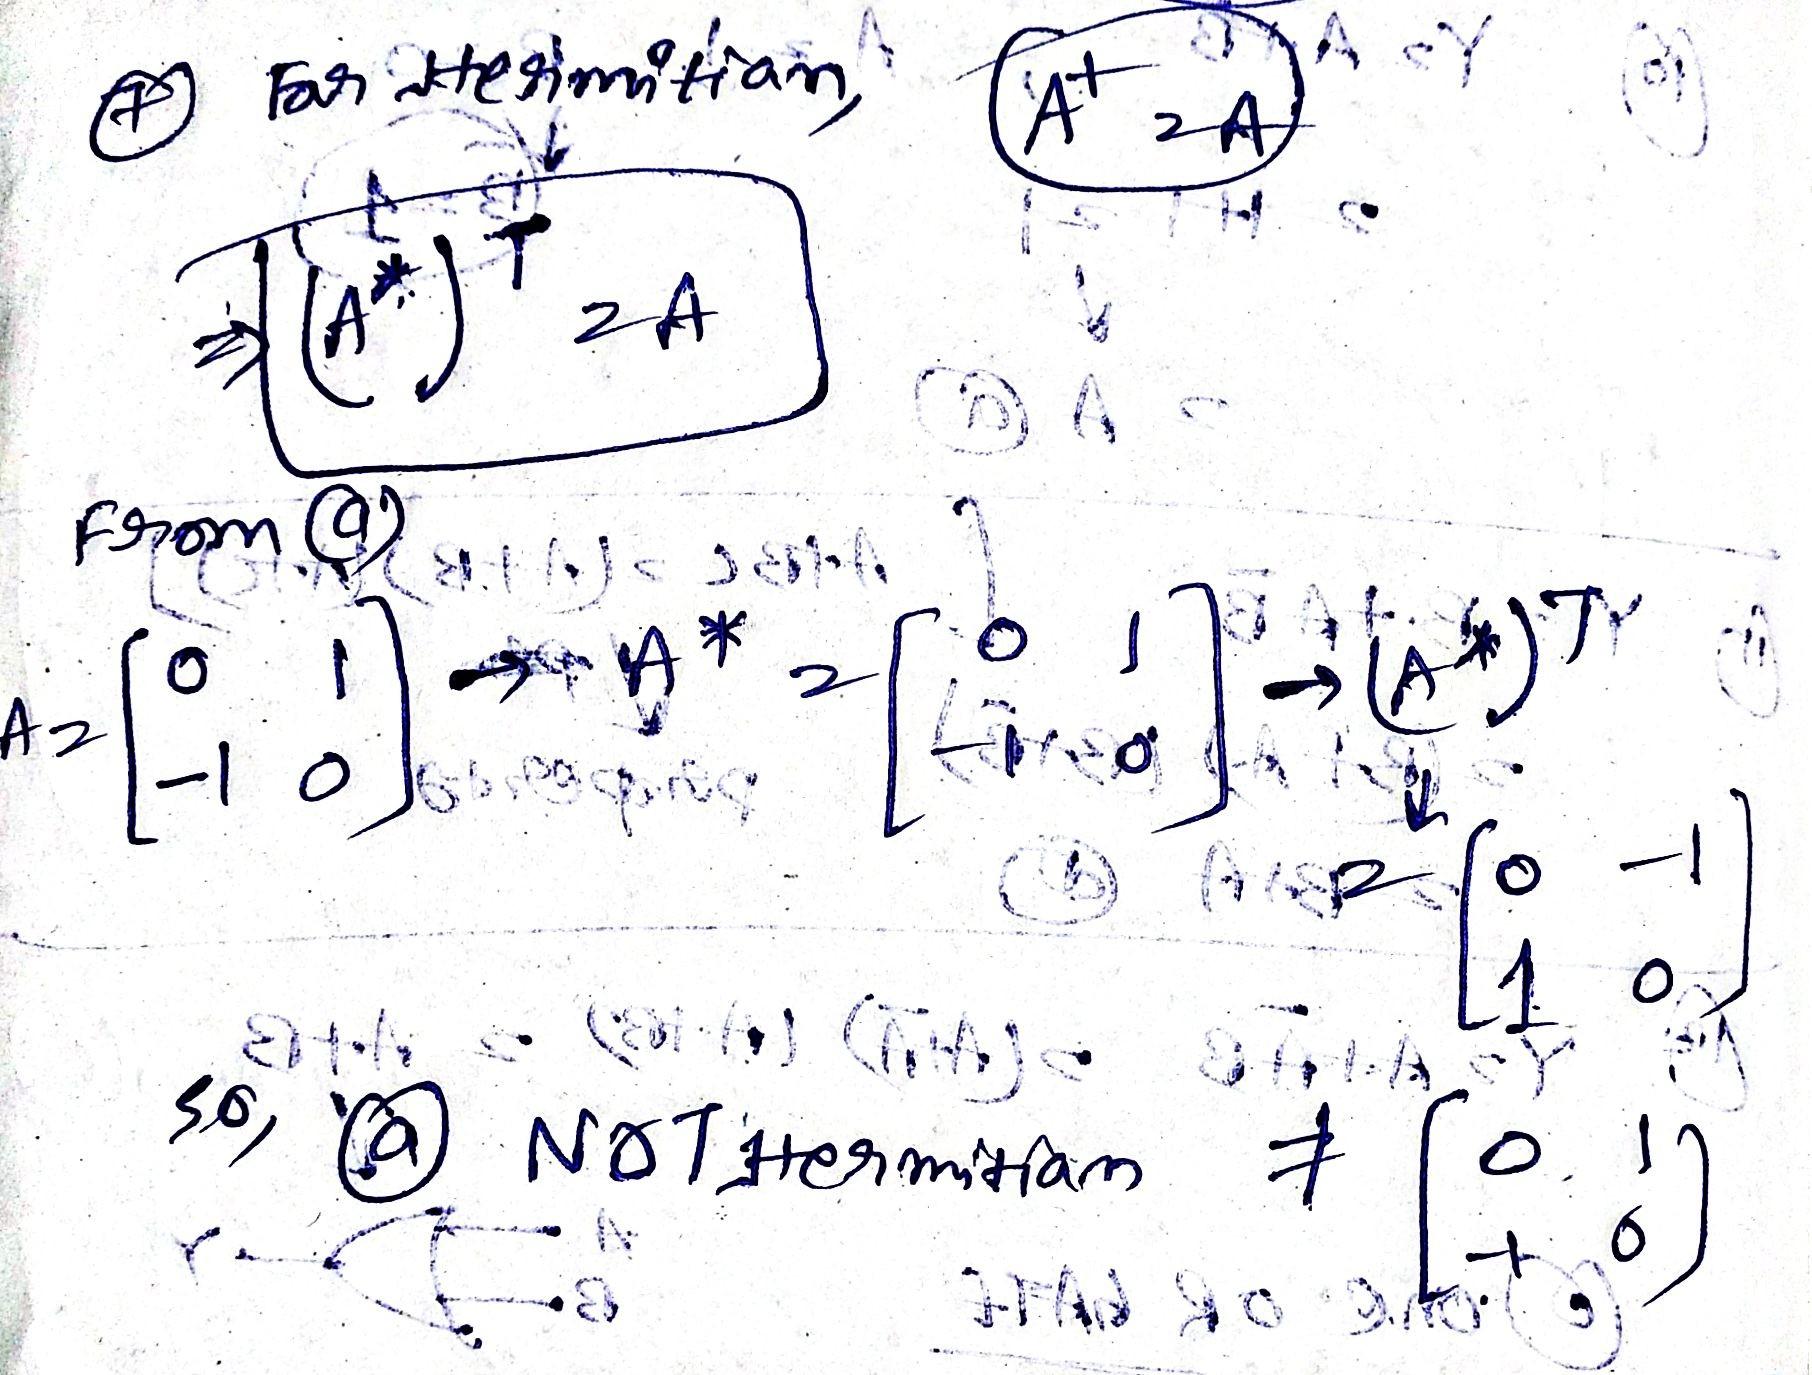 ⑦ For Hermitian, A⁺ = A
⇒ (A*)ᵀ = A
From ⓐ
A = [0 1 -1 0] → A* = [0 1 -1 0] → (A*)ᵀ
= [0 -1 1 0]
So, ⓐ NOT Hermitian ≠ [0 1 -1 0]